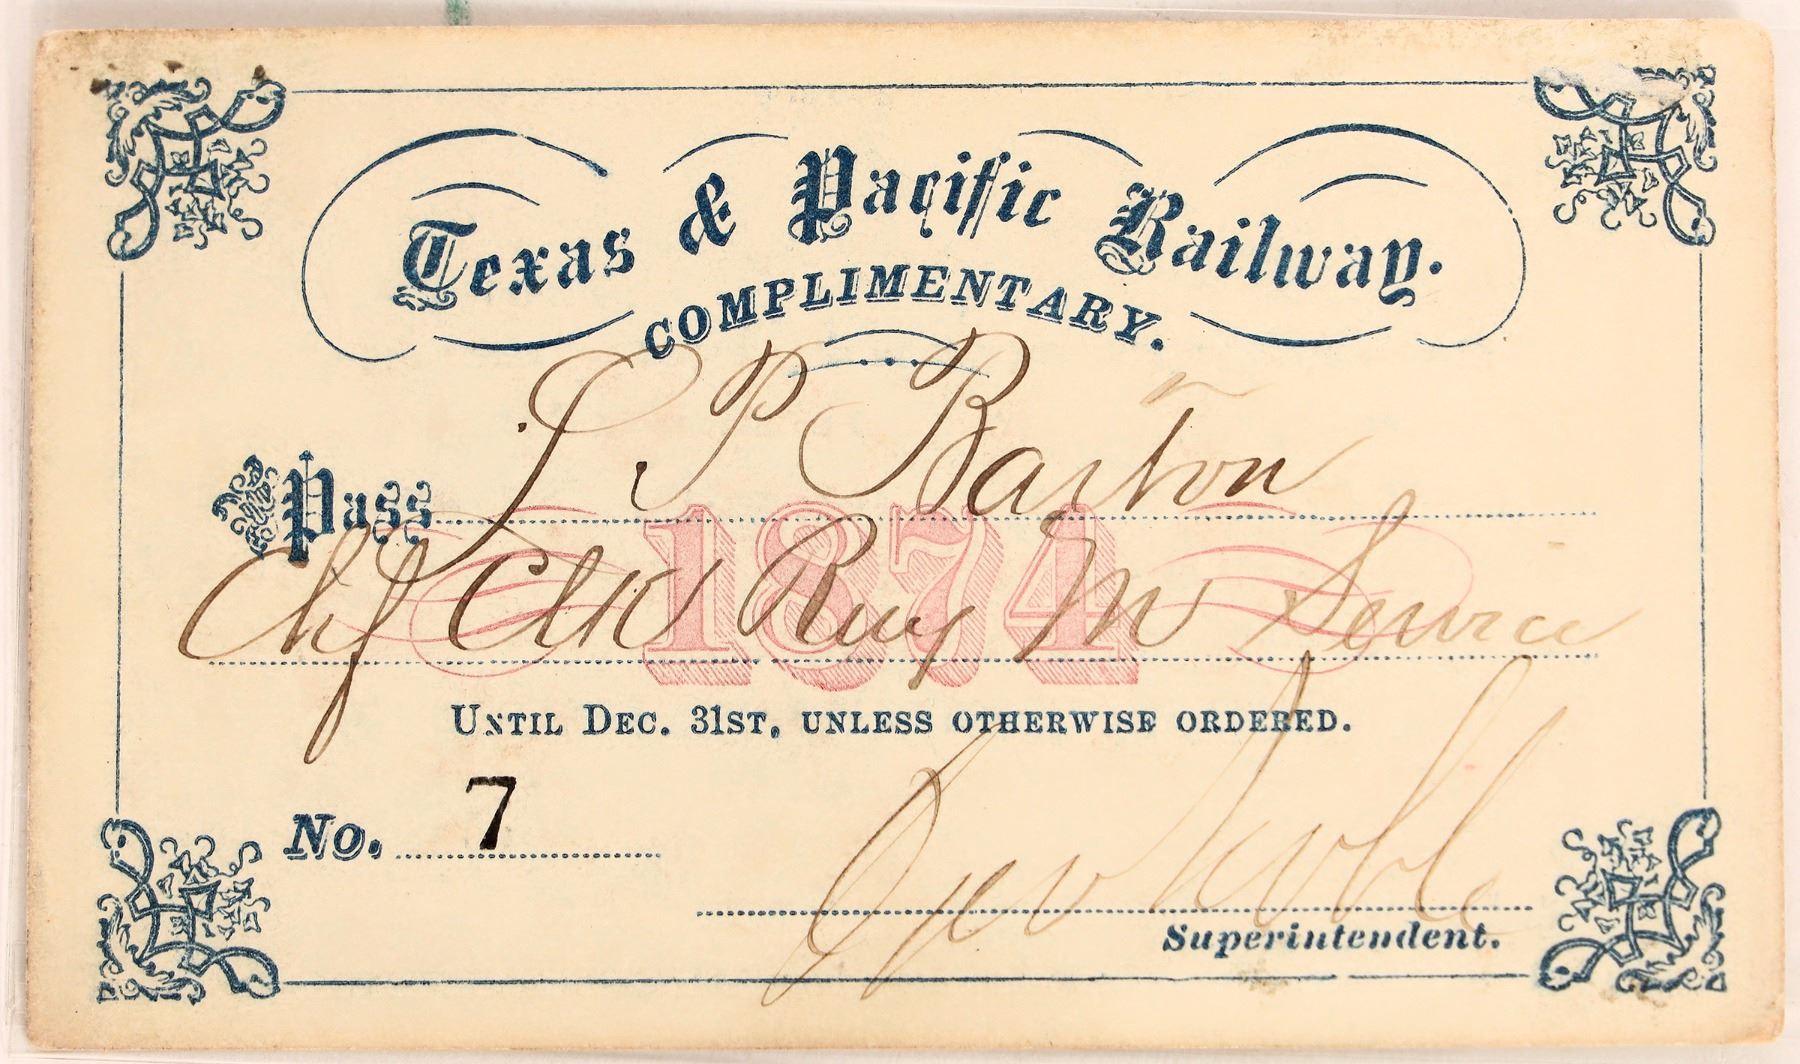 Texas & Pacific Railway.
COMPLIMENTARY.
Pass J P Barton
1874
Chf Clk Ruy M Service
UNTIL DEC. 31ST, UNLESS OTHERWISE ORDERED.
No. 7
Geo Noble
Superintendent.